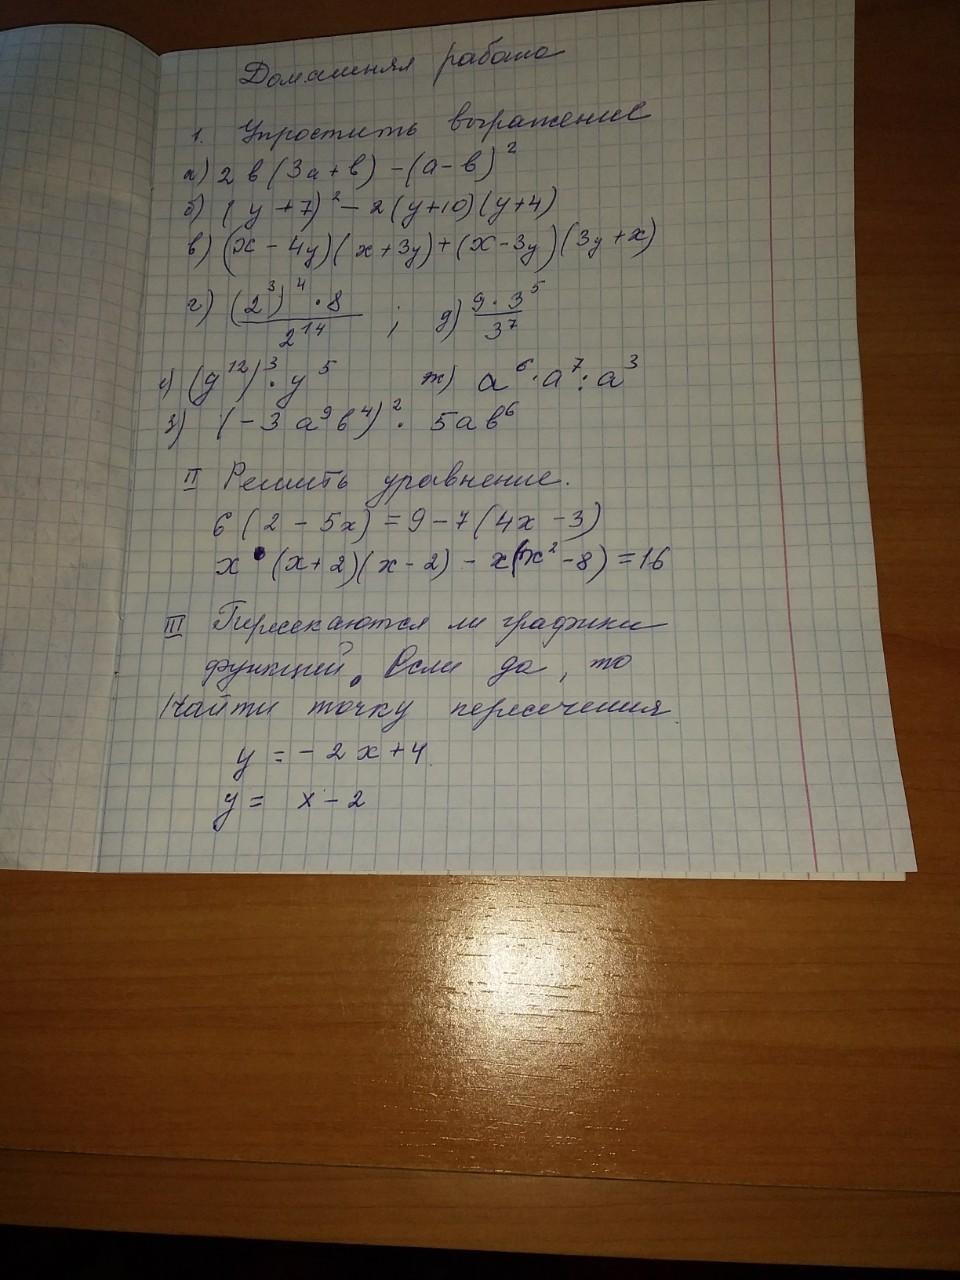 Домашняя работа
1. Упростить выражение
а) 2в(3а+в) -(а-в)²
б) (у+7)² - 2(у+10)(у+4)
в) (х-4у)(х+3у)+(х-3у)(3у+х)
г) (2³)⁴·8 / 2¹⁴ ; д) 9·3⁵ / 3⁷
е) (у¹²)³·у⁵ ж) а⁶·а⁷:а³
з) (-3а⁹в⁴)²· 5ав⁶
II Решить уравнение.
6(2-5х)=9-7(4х-3)
х·(х+2)(х-2) - х(х²-8)=16
III Пересекаются ли графики
функций. Если да, то
Найти точку пересечения
у = -2х+4
у = х-2